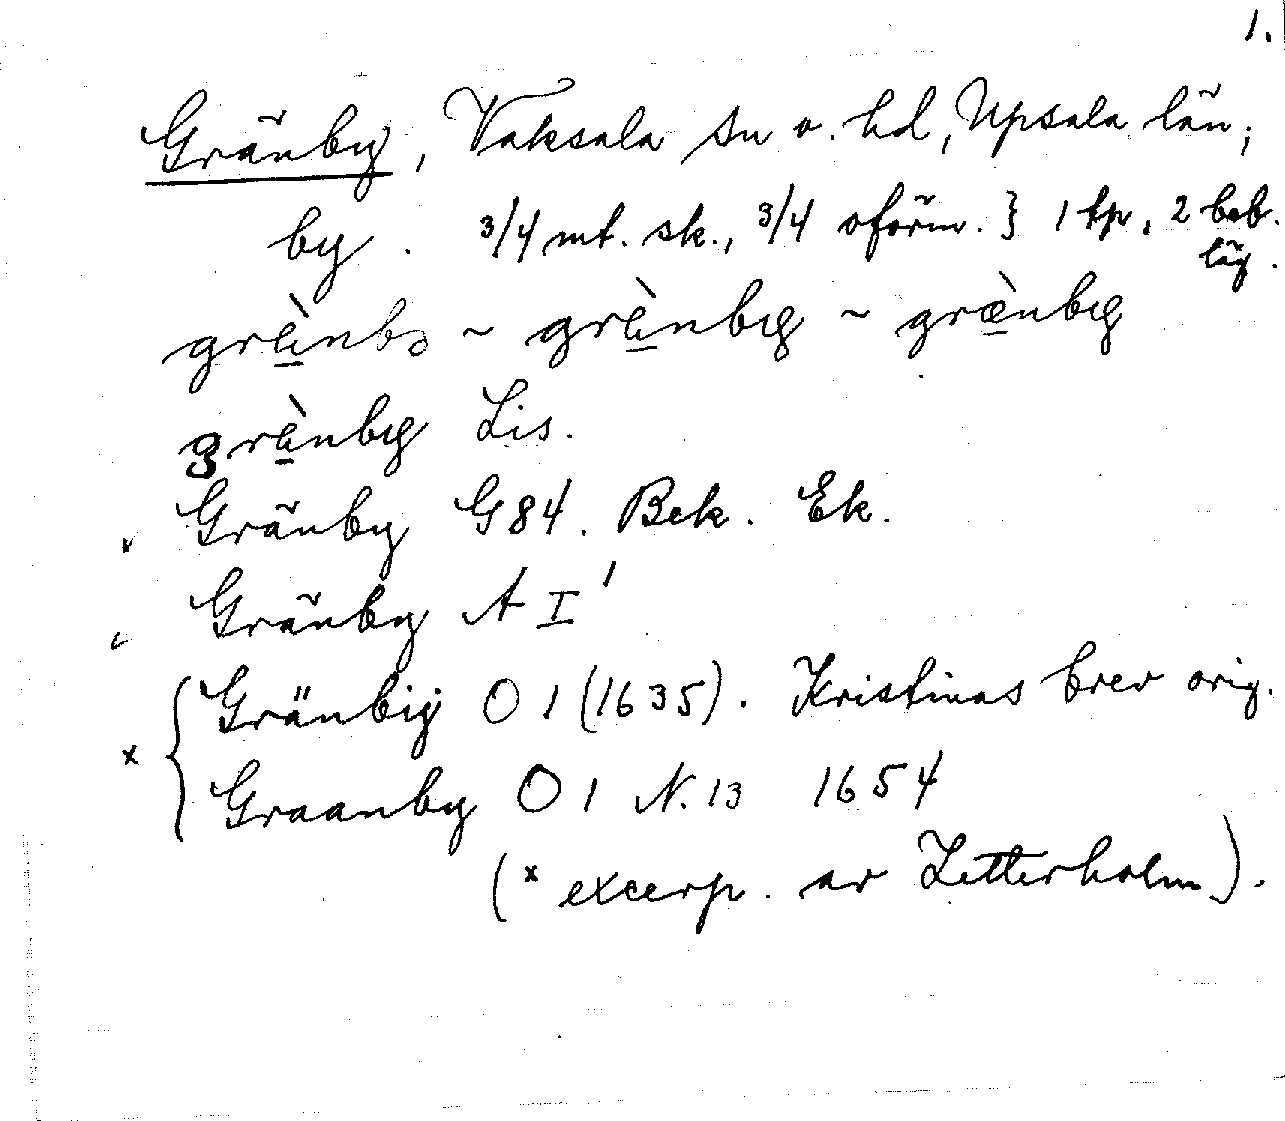 1.
Gränby, Vaksala sn o. hd, Upsala län;
by. 3/4 mt. sk., 3/4 oförm. } 1 tp, 2 beb.
läg.
grä̀nbo ~ grä̀nby ~ græ̀nby
grä̀nby Lis.
Gränby G84. Bek. Ek.
Gränby A I 1
x { Gränbij O 1 (1635). Kristinas brev orig.
Graanby O 1 N. 13 1654
(x excerp. av Zetterholm).